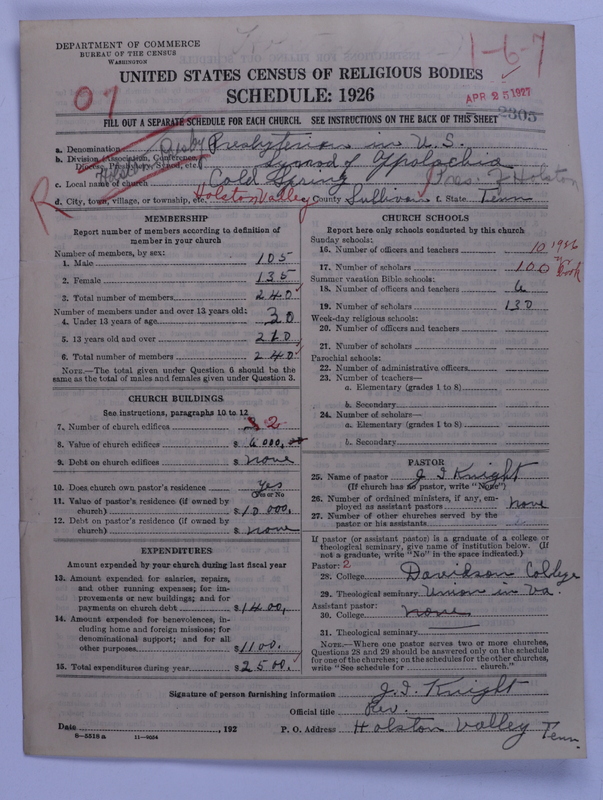 DEPARTMENT OF COMMERCE
BUREAU OF THE CENSUS
WASHINGTON
1-6-7
UNITED STATES CENSUS OF RELIGIOUS BODIES
SCHEDULE: 1926
07
APR 25 1927
2305
FILL OUT A SEPARATE SCHEDULE FOR EACH CHURCH. SEE INSTRUCTIONS ON THE BACK OF THIS SHEET
a. Denomination Presbyterian in U.S.
b. Division (Association, Conference, Diocese, Presbytery, Synod, etc.) Holston Presby Synod of Appolachia
c. Local name of church Cold Spring Pres. of Holston
R
d. City, town, village, or township, etc. Holston Valley e. County Sullivan f. State Tenn
MEMBERSHIP
Report number of members according to definition of
member in your church
Number of members, by sex:
1. Male 105
2. Female 135
3. Total number of members 240
Number of members under and over 13 years old:
4. Under 13 years of age 30
5. 13 years old and over 210
6. Total number of members 240
NOTE.—The total given under Question 6 should be the
same as the total of males and females given under Question 3.
CHURCH BUILDINGS
See instructions, paragraphs 10 to 12
7. Number of church edifices 2
8. Value of church edifices $ 6000,00
9. Debt on church edifices $ none
10. Does church own pastor's residence yes
(Yes or No)
11. Value of pastor's residence (if owned by
church) $ 10000,
12. Debt on pastor's residence (if owned by
church) $ none
EXPENDITURES
Amount expended by your church during last fiscal year
13. Amount expended for salaries, repairs,
and other running expenses; for im-
provements or new buildings; and for
payments on church debt $ 1400,
14. Amount expended for benevolences, in-
cluding home and foreign missions; for
denominational support; and for all
other purposes $ 1100.
15. Total expenditures during year $ 2500.
CHURCH SCHOOLS
Report here only schools conducted by this church
Sunday schools:
16. Number of officers and teachers 10 1926
17. Number of scholars 100 Yr Book
Summer vacation Bible schools:
18. Number of officers and teachers 6
19. Number of scholars 130
Week-day religious schools:
20. Number of officers and teachers
21. Number of scholars
Parochial schools:
22. Number of administrative officers
23. Number of teachers—
a. Elementary (grades 1 to 8)
b. Secondary
24. Number of scholars—
a. Elementary (grades 1 to 8)
b. Secondary
PASTOR
25. Name of pastor J I Knight
(If church has no pastor, write "None")
26. Number of ordained ministers, if any, em-
ployed as assistant pastors none
27. Number of other churches served by the
pastor or his assistants
If pastor (or assistant pastor) is a graduate of a college or
theological seminary, give name of institution below. (If
not a graduate, write "No" in the space indicated.)
Pastor: 2
28. College Davidson College
29. Theological seminary Union in Va.
Assistant pastor:
30. College none
31. Theological seminary
NOTE.—Where one pastor serves two or more churches,
Questions 28 and 29 should be answered only on the schedule
for one of the churches; on the schedules for the other churches,
write "See schedule for church."
Signature of person furnishing information J. I. Knight
Official title Rev.
Date , 192 P. O. Address Holston Valley Tenn
8—5518 a 11—9034